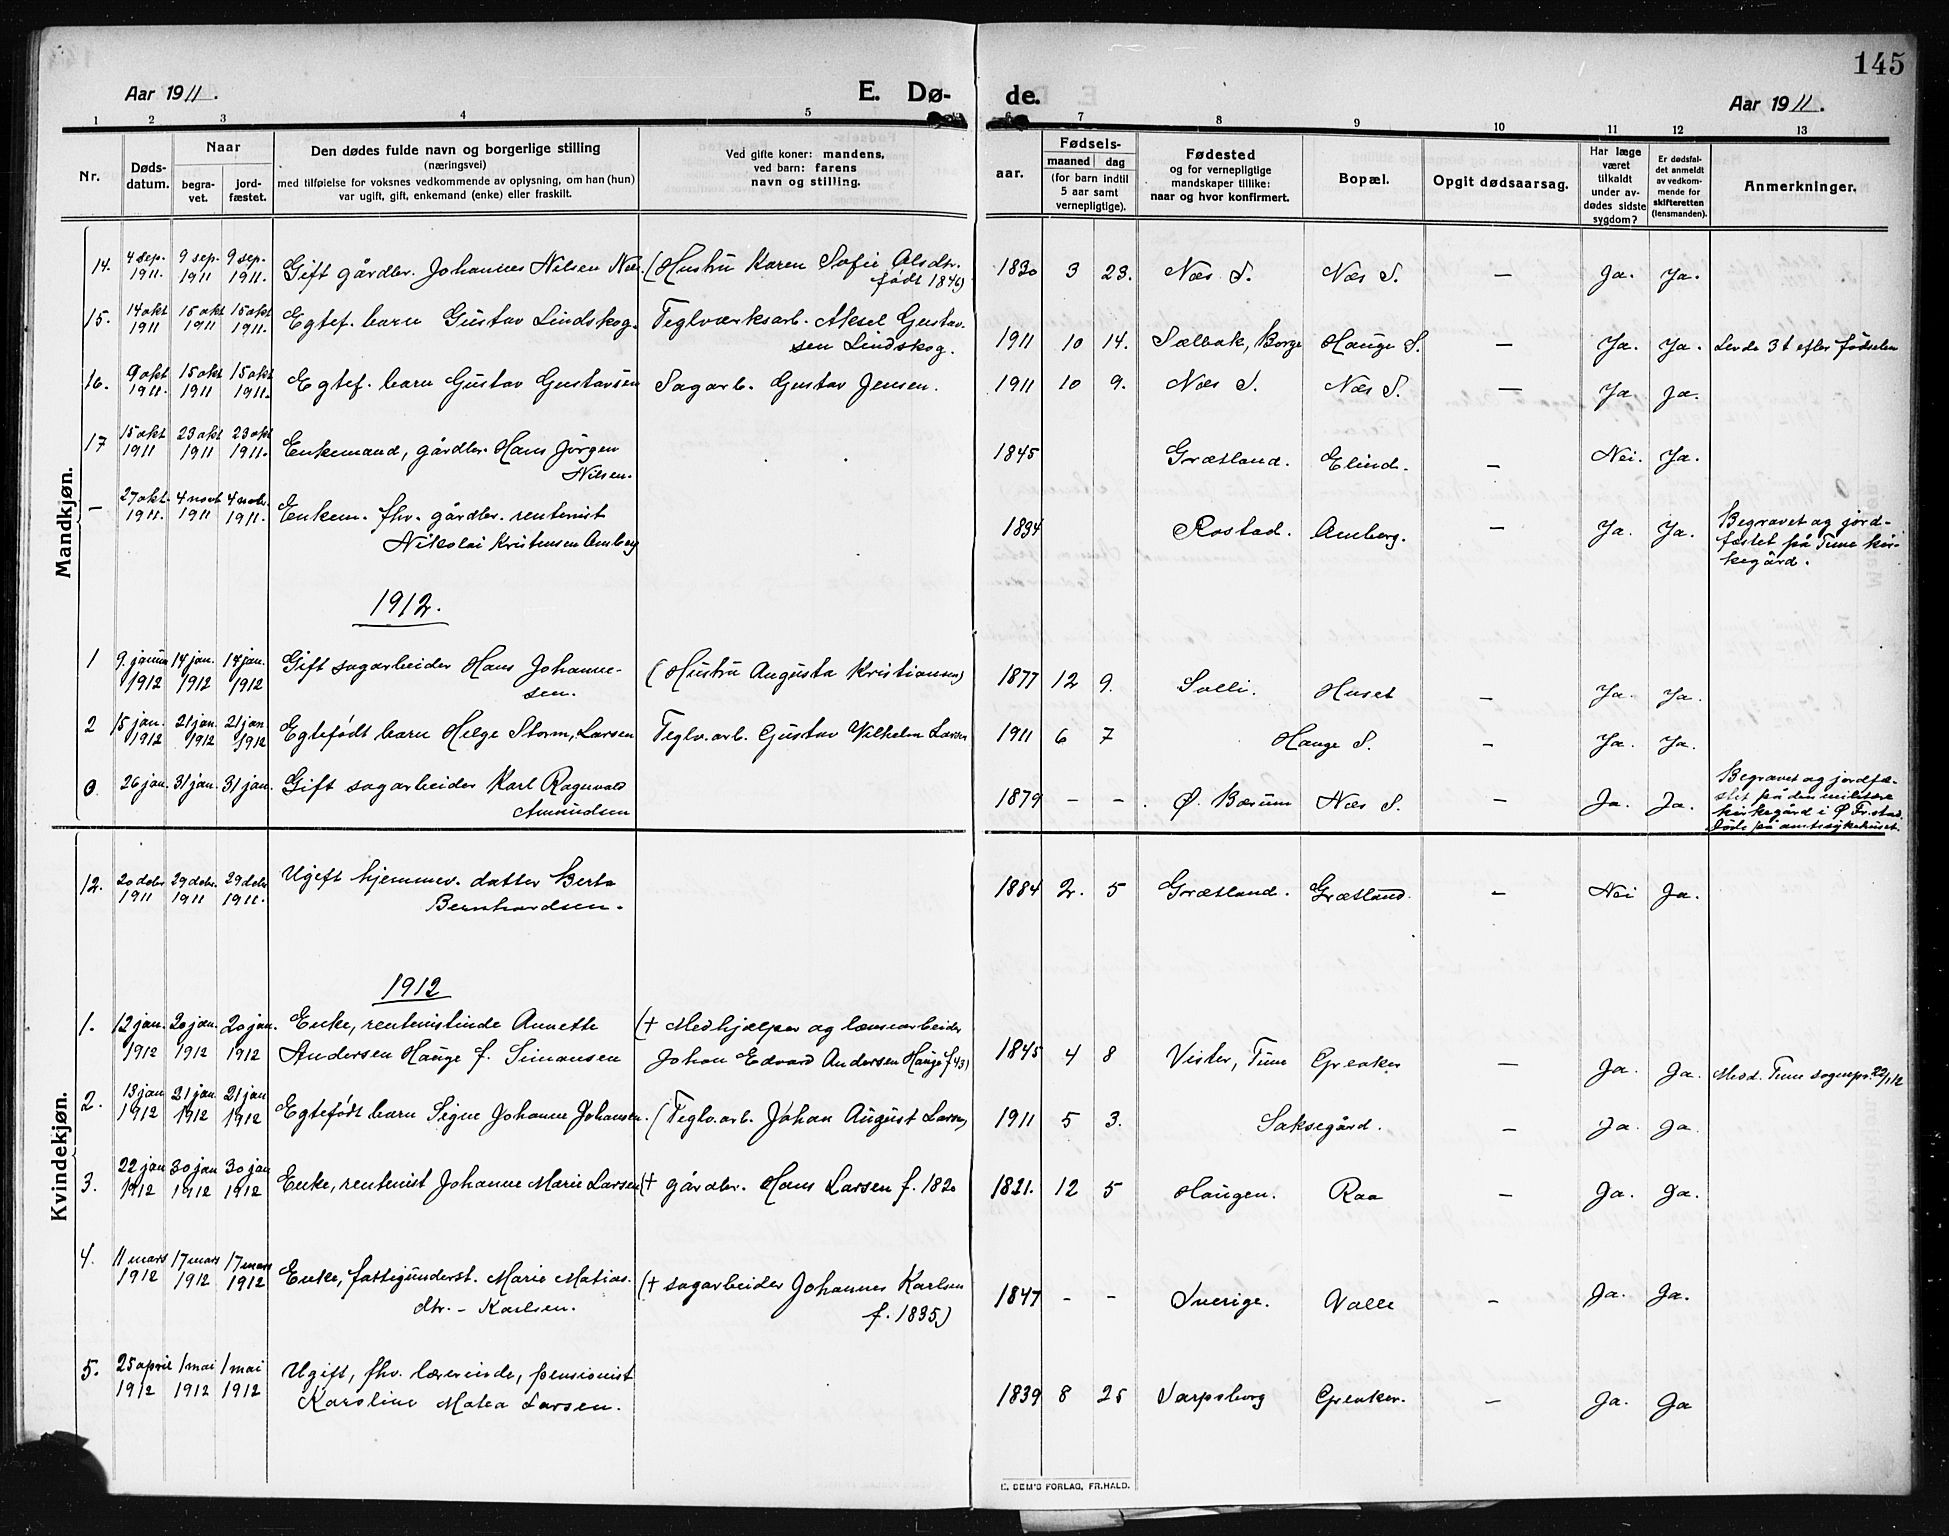 145
Aar 1911.
E. Dø-
de.
Aar 1911.
1 2 3 4 5 6 7 8 9 10 11 12 13
Nr.
Døds-
datum.
Naar
begra-
vet.
jord-
fæstet.
Den dødes fulde navn og borgerlige stilling
(næringsvei)
med tilføielse for voksnes vedkommende av oplysning, om han (hun)
var ugift, gift, enkemand (enke) eller fraskilt.
Ved gifte koner: mandens,
ved barn: farens
navn og stilling.
Fødsels-
aar.
maaned dag
(for barn indtil
5 aar samt
vernepligtige).
Fødested
og for vernepligtige
mandskaper tillike:
naar og hvor konfirmert.
Bopæl.
Opgit dødsaarsag.
Har læge
været
tilkaldt
under av-
dødes sidste
sygdom?
Er dødsfal-
det anmeldt
av vedkom-
mende for
skifteretten
(lensmanden).
Anmerkninger.
Mandkjøn.
14. 4 sep. 1911. 9 sep. 1911 9 sep. 1911. Gift gårdbr. Johannes Nilsen Næs. (Hustru Karen Sofie Olsdtr. 1830 3 23. Næs S. Næs S. — Ja. Ja.
født 1846)
15. 14 okt 1911 15 okt 1911 15 okt 1911. Egtef. barn Gustav Lindskog. Teglværksarb. Aksel Gustav-
sen Lindskog. 1911 10 14. Sælbak, Borge Hauge S. — Ja. Ja. Levde 3 t efter fødselen
16. 9 okt 1911. 15 okt 1911 15 okt 1911. Egtef. barn Gustav Gustavsen Sagarb. Gustav Jensen. 1911 10 9. Næs S. Næs S. — Ja Ja.
17 15 okt 1911 23 okt 1911 23 okt 1911. Enkemand, gårdbr. Hans Jörgen
Nilsen. 1845 Grætland. Elind. — Nei. Ja.
— 27 okt. 1911. 4 novbr 1911 4 novbr. 1911. Enkem. fhv. gårdbr. rentenist
Nikolai Kristensen Amberg 1834 Rostad. Amberg. — Ja. Ja. Begravet og jord-
fæstet på Tune kir-
kegård.
1912.
1 9. januar 1912 14 jan. 1912 14 jan. 1912 Gift sagarbeider Hans Johanne-
sen. (Hustru Augusta Kristiansen) 1877 12 9. Solli. Huset — Ja. Ja.
2 15 jan. 1912 21 jan. 1912 21 jan 1912 Egtefødt barn Helge Storm, Larsen Teglv.arb. Gustav Vilhelm Larsen 1911 6 7 Hauge S. — Ja. Ja.
0 26 jan. 31 jan. 31 jan. Gift sagarbeider Karl Ragnvald
Amundsen 1879 — — Ø. Bærum Næs S. — Ja. Ja. Begravet og jordfæ-
stet på den militære
kirkegård i Ø Fr.stad.
Døde på amtssykehuset.
Kvindekjøn.
12. 20 debr 1911 29 debr. 1911 29 debr 1911. Ugift hjemmev. datter Berta
Bernhardsen. 1884 2. 5 Grætland. Grætland. — Nei Ja.
1912
1. 12 jan. 1912 20 jan. 1912 20 jan. 1912 Enke, rentenistinde Annette (+ Medhjælper og lænsearbeider
Andersen Hauge f. Simonsen Johan Edvard Andersen Hauge f 43) 1845 4 8 Vister, Tune Greaker — Ja. Ja. Med. Tune sognepr. 22/1 12
2. 13 jan 1912 21 jan 1912 21 jan 1912 Egtefødt barn Signe Johanne Johansen. (Teglv.arb. Johan August Larsen) 1911 5 3. Saksegård. — Ja. Ja.
3. 22 jan 1912 30 jan 1912 30 jan 1912 Enke, rentenist Johanne Marie Larsen (+ gårdbr. Hans Larsen f. 1820 1821. 12 5 Haugen. Raa — Ja. Ja.
4. 11 mars 1912 17 mars 1912 17 mars 1912 Enke, fattigunderst. Marie Matias- (+ sagarbeider Johannes Karlsen
dtr. – Karlsen. f. 1835) 1847 — — Sverige. Valle — Ja. Ja.
5. 25 april 1912 1 mai 1912 1 mai 1912 Ugift, fhv. lærerinde, pensionist
Karoline Matea Larsen. 1839 8 25 Sarpsborg Greaker. — Ja. Ja
E. SEM'S FORLAG, FR.HALD.